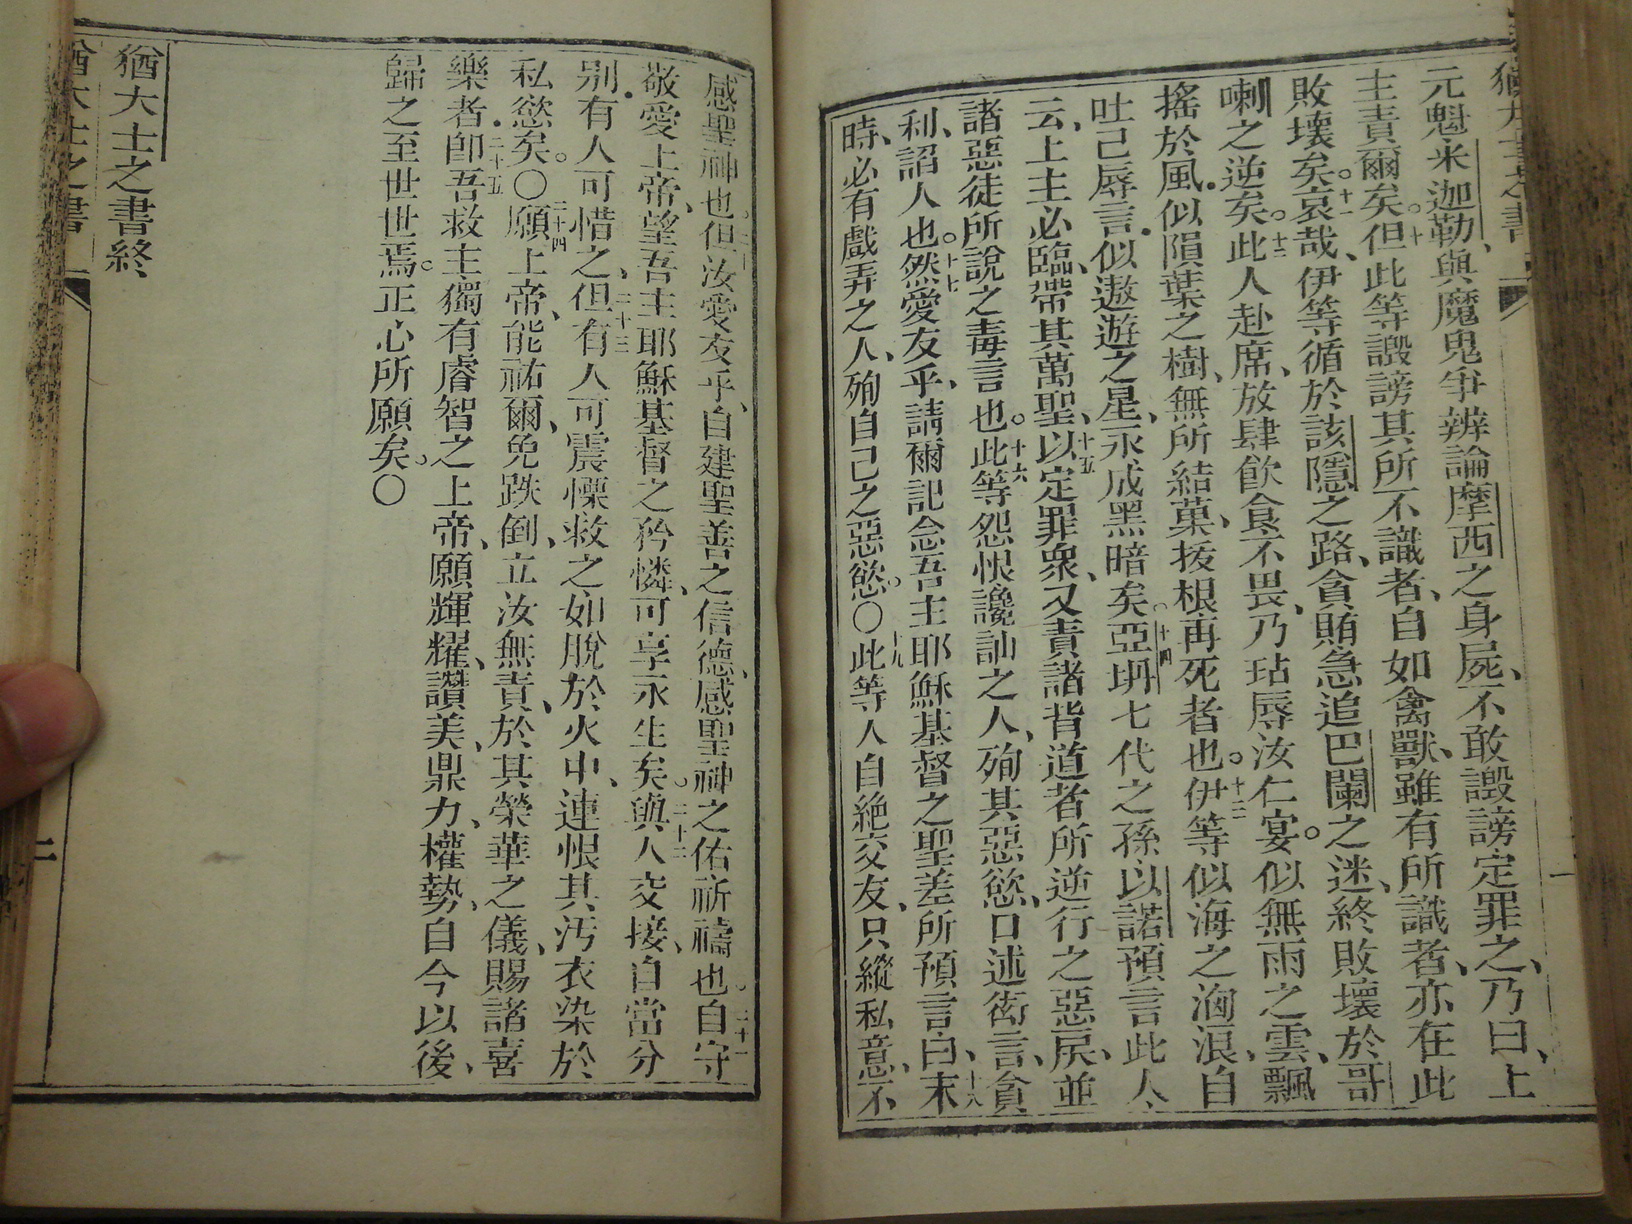 猶大士之書 一
元魁米迦勒、與魔鬼爭辨論摩西之身屍、不敢譭謗定罪之、乃曰、上
主責爾矣。十但此等譭謗其所不識者、自如禽獸、雖有所識者、亦在此
敗壞矣。十一哀哉、伊等循於該隱之路、貪賄急追巴闌之迷、終敗壞於哥
喇之逆矣。十二此人赴席、放肆飲食不畏、乃玷辱汝仁宴。似無雨之雲、飄
搖於風。似隕葉之樹、無所結菓、拔根再死者也。十三伊等似海之洶浪、自
吐己辱言。似遨遊之星、永成黑暗矣。十四亞坍七代之孫以諾預言此人
云、上主必臨、帶其萬聖、十五以定罪衆、又責諸背道者所逆行之惡戾、並
諸惡徒所說之毒言也。十六此等怨恨讒訕之人、殉其惡慾、口述衒言、貪
利、諂人也。十七然愛友乎、請爾記念吾主耶穌基督之聖差所預言曰、十八末
時、必有戲弄之人、殉自己之惡慾。〇十九此等人自絕交友、只縱私意、不
感聖神也。二十但汝愛友乎、自建聖善之信德、感聖神之佑祈禱也。二十一自守
敬愛上帝、望吾主耶穌基督之矜憐、可享永生矣。二十二與人交接、自當分
别。有人可惜之、二十三但有人可震慄救之、如脫於火中、連恨其汚衣染於
私慾矣。〇二十四願上帝、能祐爾、免跌倒、立汝無責、於其榮華之儀、賜諸喜
樂者。二十五卽吾救主獨有睿智之上帝、願輝耀、讚美、鼎力、權勢、自今以後、
歸之至世世焉。正心所願矣。〇
猶大士之書終
猶大士之書 二